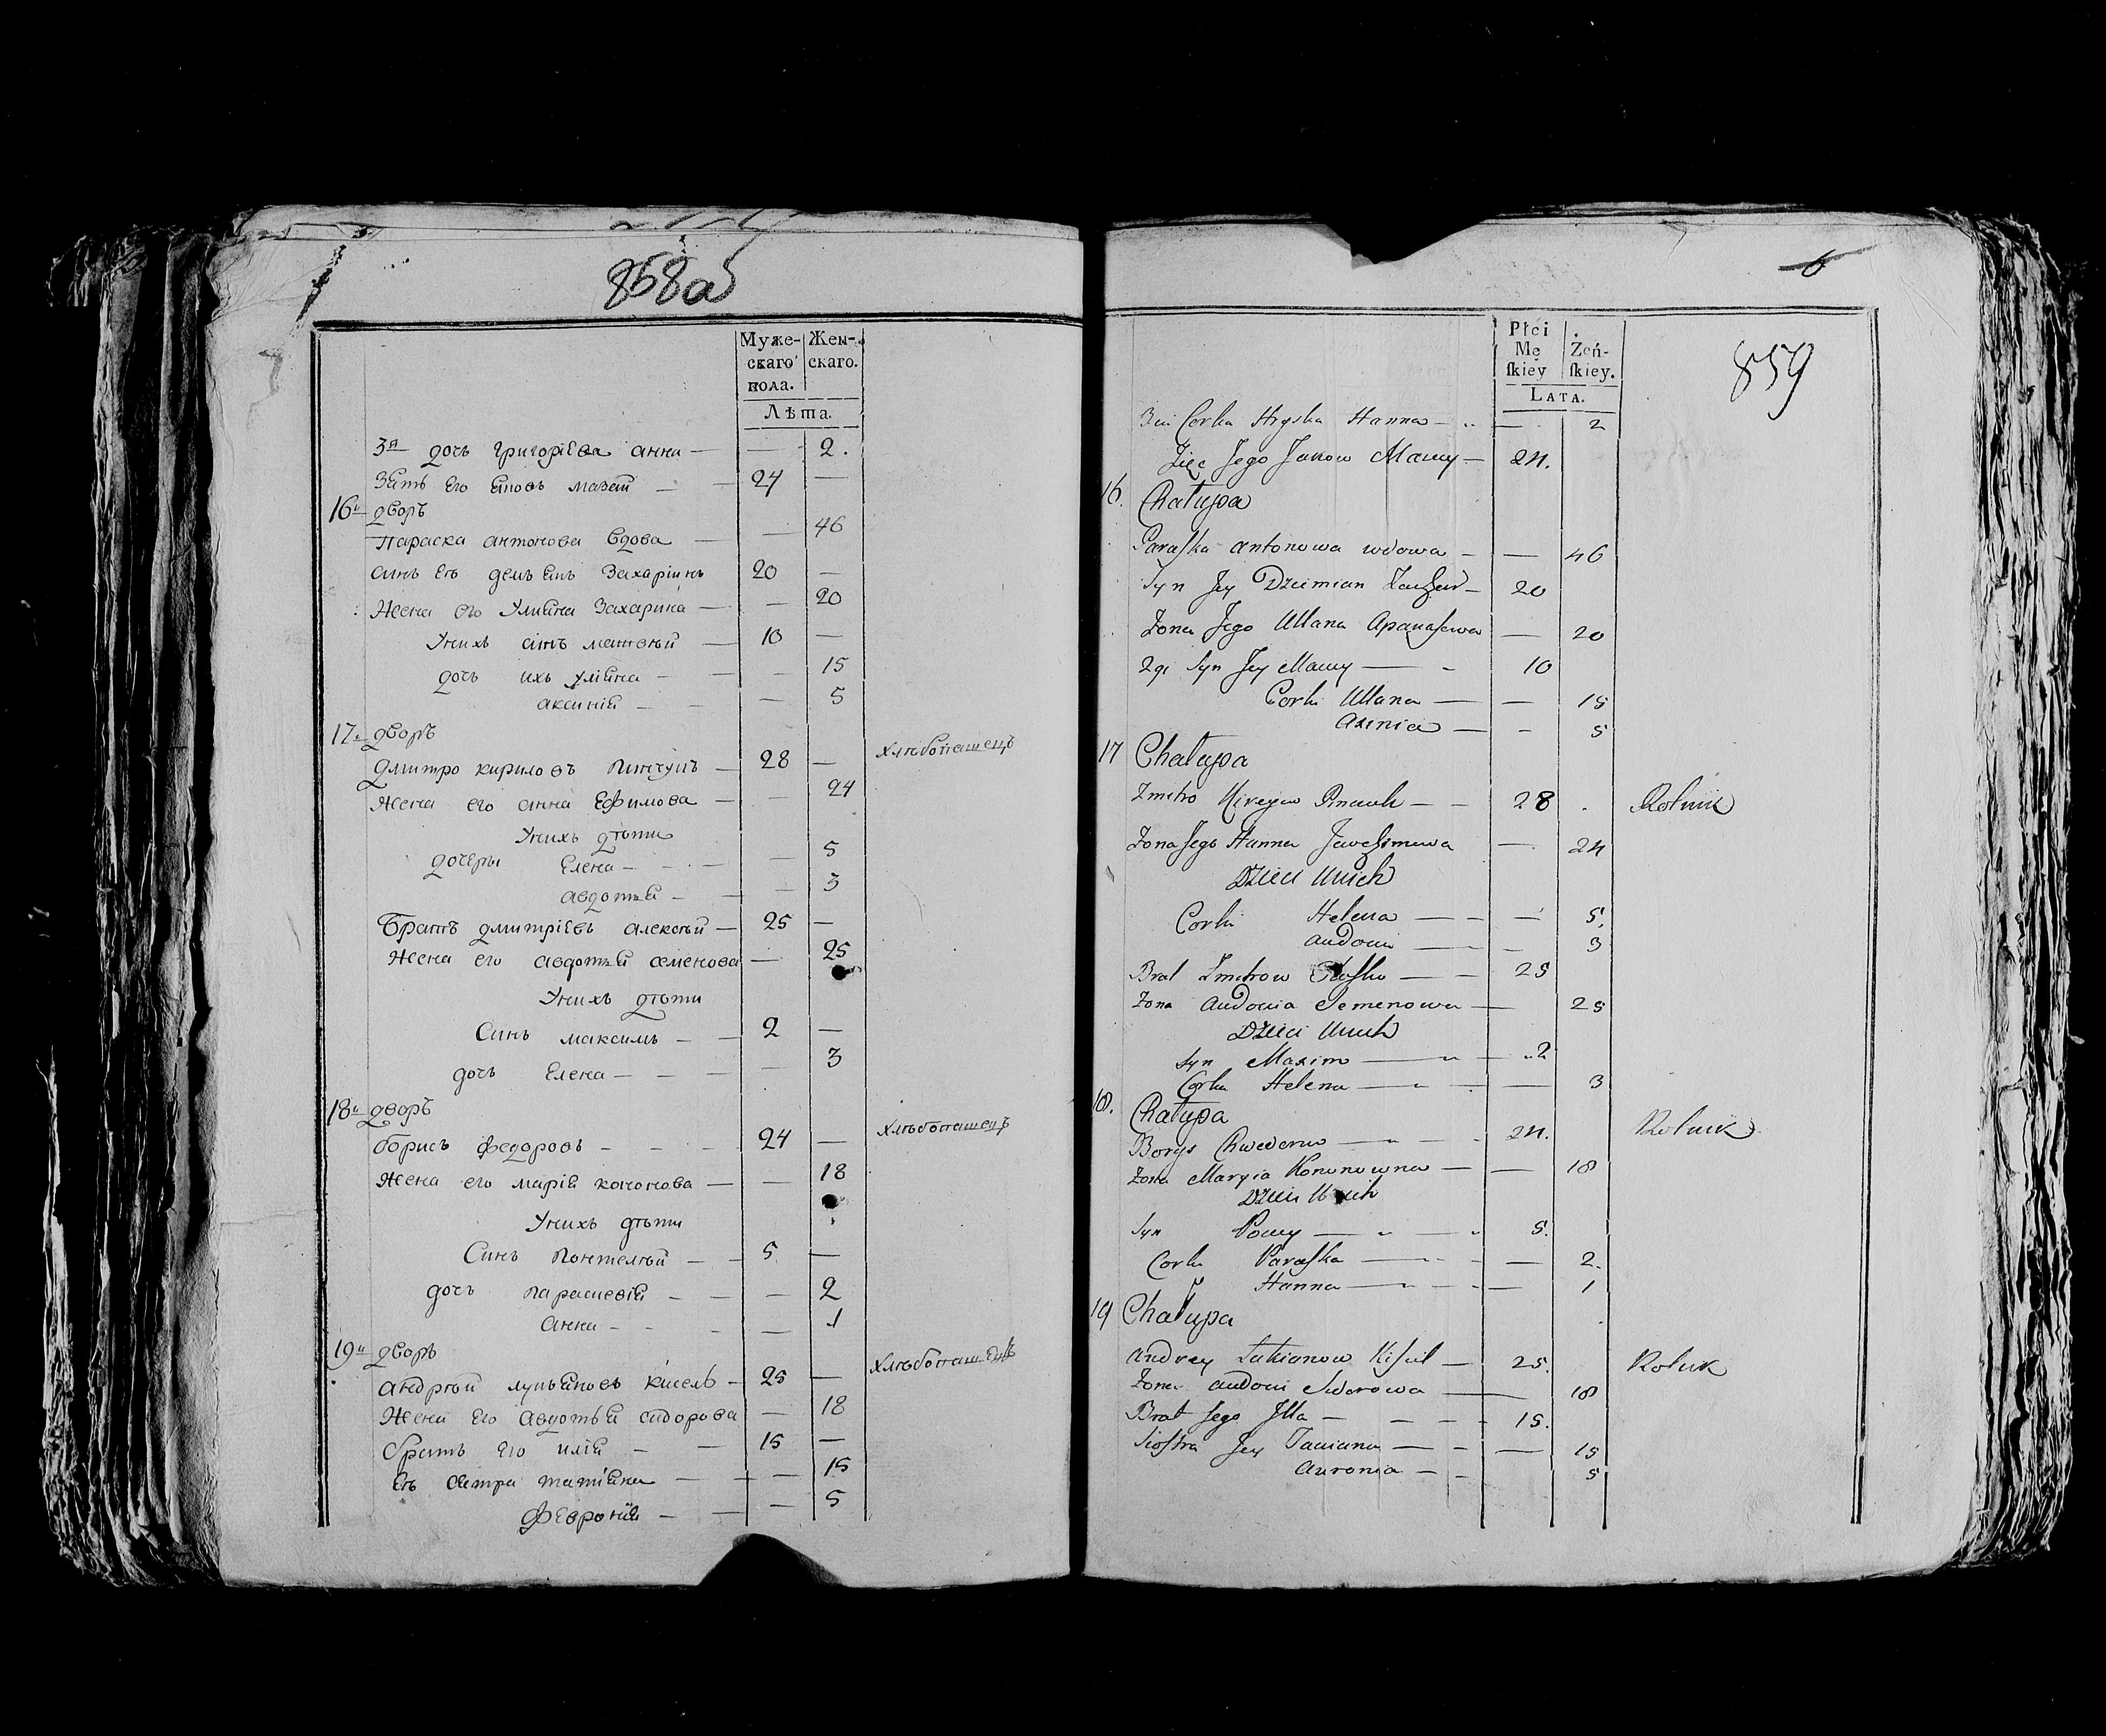 858аб
Муже-
скаго
пола.
Жен-
скаго.
Лѣта.
3я дочь григорїева анна — — 2.
Зять его яновъ мазей — 24 —
16й дворъ
Параска антонова вдова — — 46
синъ еѣ демьянъ Захарїинъ 20 —
Жена его Улияна Захарина — — 20
Унихъ синъ матвѣй — 10 —
дочь ихъ улияна — — 15
аксинїя — — 5
17й дворъ
дмитро кириловъ пинчукъ — 28 — Хлѣбопашецъ
Жена его анна Ефимова — — 24
Унихъ дѣти
дочеры Елена — — 5
авдотья — — 3
Братъ дмитрїевъ алексѣй — 25 —
Жена его авдотья семенова — 25
Унихъ дѣти
Синъ максимъ — 2 —
дочь Елена — — 3
18й дворъ
борисъ федоровъ — 24 — Хлѣбопашецъ
Жена его марїя кононова — — 18
Унихъ дѣти
Синъ Понтелѣй — 5 —
дочь парасковїя — — 2
Анна — — 1
19й дворъ
андрѣй лукьяновъ кисель — 25 — Хлѣбопашецъ
Жена Его Авдотья сидорова — 18
братъ Его илїя — 15 —
Еѣ сестра татїяна — — 15
Феврония — — 5
6
859
Płci
Mę
ſkiey
Żeń-
ſkiey.
LATA.
3cia Corka Hryska Hanna — — 2
Zięć Jego Janow Macey — 24.
16. Chałupa
Paraſka antonowa wdowa — — 46
Syn Jey Dziemian Zachar — 20
Żona Jego Ullana Apanaſowa — 20
2gi Syn Jey Macwey — 10
Corki Ullana — — 15
Axinia — — 5
17 Chałupa
Zmitro Kireyew Pinczuk — 28 . Rolnik
Żona Jego Hanna Jawchimowa — 24
Dzieci Unich
Corki Helena — — 5.
audocia — — 3
Brat Zmitrow — 25
Żona Audocia Semenowa — 25
Dzieci Unich
Syn Maxim — 2
Corka Helena — — 3
18. Chałupa
Borys Chwedorow — 24. Rolnik
Żona Maryia Kononowna — — 18
Dzieci Unich
Syn — 5.
Corka Paraſka — — 2.
Hanna — — 1
19 Chałupa
Andrey Łukianow Kiſiel — 25. Rolnik
Żona audocia Sidorowa — 18
Brat Jego Jlla — 15.
Siostra Jey Taciana — — 15
Auxonia — 5